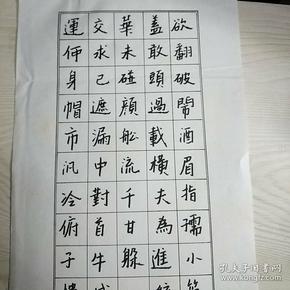 運交華蓋欲
何求未敢翻
身己碰頭破
帽遮顏過鬧
市漏船載酒
汎中流橫眉
冷對千夫指
俯首甘為孺
子牛躲進小
孔夫子旧书网